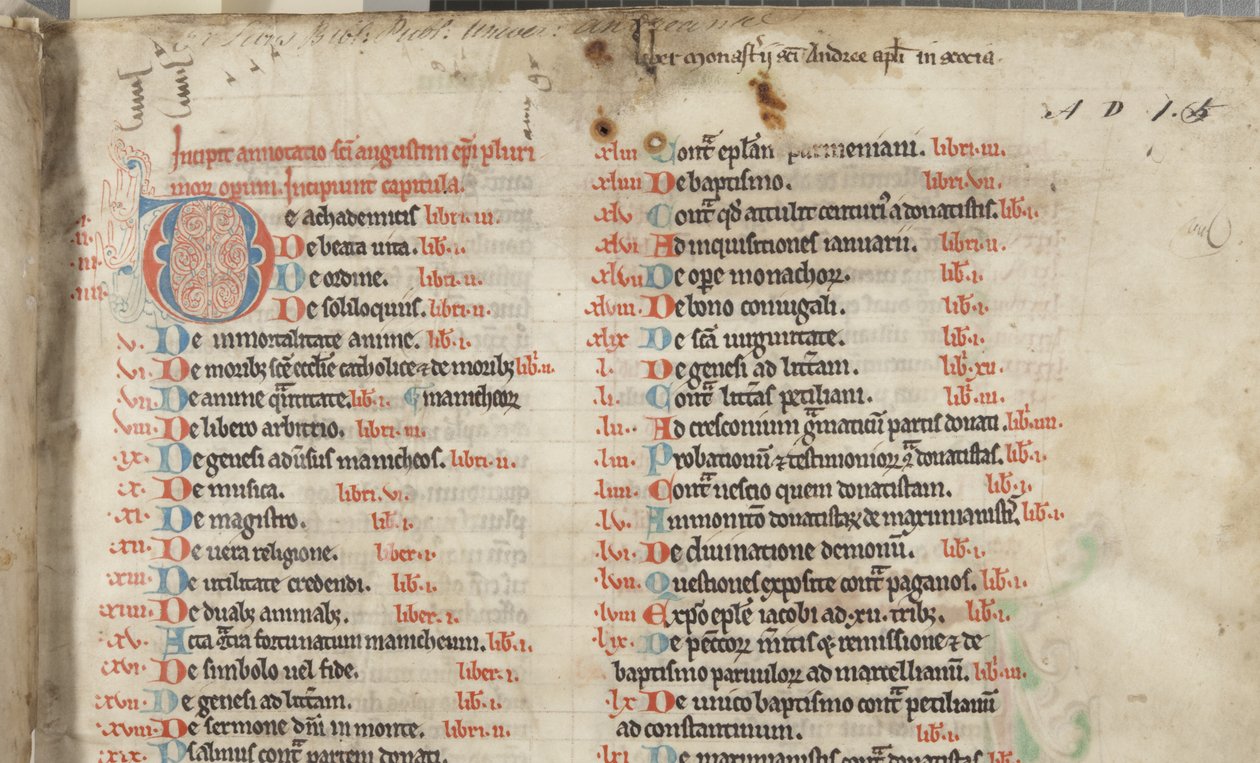 Ex Libris Bibl. Publ. Univer. Andreanae
liber monast'ii sci Andree apli in scocia
A D 1. 5
Incipit annotatio sci augustini epi pluri
morꝝ operum. Incipiunt capitula.
.i. De Achademicis libri .iii.
.ii. De beata uita. lib̄ .i.
.iii. De ordine. libri .ii.
.iiii. De soliloquiis. libri .ii.
.v. De inmortalitate anime. lib̄ .i.
.vi. De moribꝫ sce ecclie catholice ⁊ de moribꝫ lib̄i .ii.
.vii. De anime qᷓntitate. lib̄ .i. ¶ manicheoꝝ
.viii. De libero arbitrio. libri .iii.
.ix. De genesi adūsus manicheos. libri .ii.
.x. De musica. libri .vi.
.xi. De magistro. lib̄ .i.
.xii. De uera religione. liber .i.
.xiii. De utilitate credendi. lib̄ .i.
.xiiii. De duabꝫ animabꝫ. liber .i.
.xv. Acta ɔtᷓ fortunatum manicheum. lib̄ .i.
.xvi. De simbolo uel fide. liber .i.
.xvii. De genesi ad litt̄am. lib̄ .i.
.xviii. De sermone dn̄i in monte. libri .ii.
.xix. Psalmus contᷓ partem donati.
.xliii. Contᷓ epl̄am parmeniani. libri .iii.
.xliiii. De baptismo. libri .vii.
.xlv. Contᷓ qd̄ attulit centuriꝰ a donatistis. lib̄ .i.
.xlvi. Ad inquisitiones ianuarii. libri .ii.
.xlvii. De oꝑe monachoꝝ. lib̄ .i.
.xlviii. De bono coniugali. lib̄ .i.
.xlix. De scā uirginitate. lib̄ .i.
.l. De genesi ad litt̄am. lib̄i .xii.
.li. Contᷓ litt̄as petiliani. lib̄i .iii.
.lii. Ad cresconium gᷓmaticū partis donati. lib̄i .iiii.
.liii. Probationū ⁊ testimonioꝝ ɔtᷓ donatistas. lib̄ .i.
.liiii. Contᷓ nescio quem donatistam. lib̄ .i.
.lv. Ammonitio donatistaꝝ de maximianistis. lib̄ .i.
.lvi. De diuinatione demonū. lib̄ .i.
.lvii. Questiones exposite contᷓ paganos. lib̄ .i.
.lviii. Expo eple iacobi ad .xii. tribꝫ. lib̄ .i.
.lix. De pecc̄oꝝ m̄itis ⁊ remissione ⁊ de
baptismo paruuloꝝ ad marcellianū. lib̄i .iii.
.lx. De unico baptismo contᷓ petilianū
ad constantinum. lib̄ .i.
.lxi. De maximianistis contᷓ donatistas. lib̄